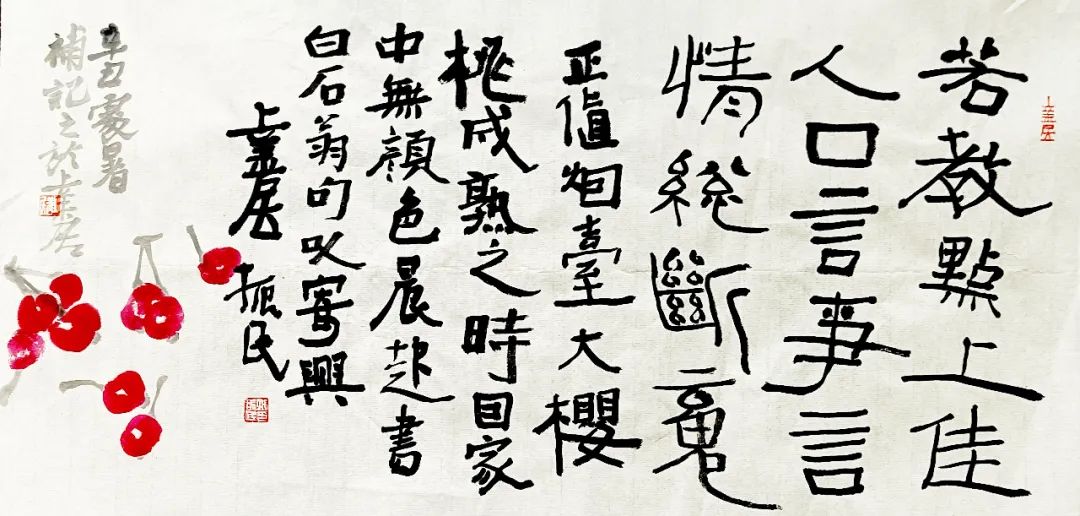 若教點上佳
人口言事言
情総斷䰟
正值烟臺大櫻
桃成熟之時回家
中無顏色晨起書
白石翁句以寄興
居 振民
辛丑處暑
補記之於居